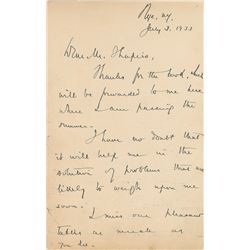 Rye, N.Y.
July 3, 1933
Dear Mr. Shapiro,
Thanks for the book, which
will be forwarded to me here
where I am passing the
summer.
I have no doubt that
it will help me in the
solution of problems that are
likely to weigh upon me
soon.
I miss our pleasant
talks as much as
you do.